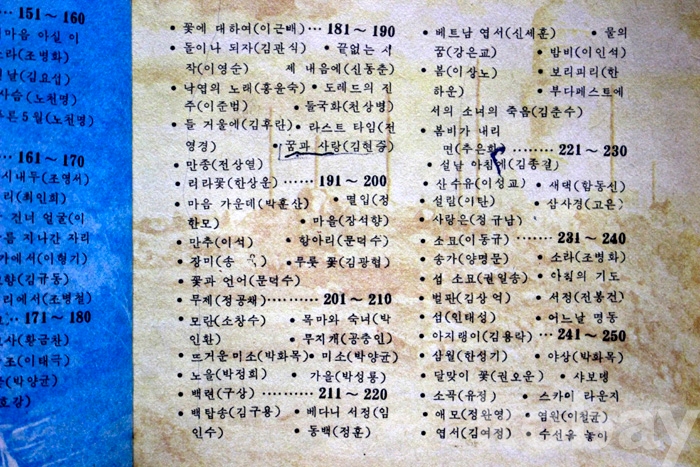 … 151 ~ 160
마음 아실 이
소라(조병화)
날(김요섭)
사슴(노천명)
푸른 5월(노천명)
… 161 ~ 170
시내무(조영서)
리(최인희)
건너 얼굴(이
를 지나간 자리
가에서(이형기)
향(김규동)
리에서(조병철)
… 171 ~ 180
사(황금찬)
포(이태극)
(박양균)
호강)
• 꽃에 대하여(이근배) … 181 ~ 190
• 돌이나 되자(김관식) • 끝없는 시
작(이영순) 제 내음에(신동춘)
• 낙엽의 노래(홍윤숙) • 도레드의 진
주(이준범) • 들국화(천상병)
• 들 거울에(김후란) • 라스트 타임(전
영경) • 꿈과 사랑(김현승)
• 만종(전상열)
• 리라꽃(한상운) …… 191 ~ 200
• 마음 가운데(박훈산) • 멸입(정
한모) • 마을(장석향)
• 만추(이석) • 항아리(문덕수)
• 장미(송 욱) • 무릇 꽃(김광협)
• 꽃과 언어(문덕수)
• 무제(정공채) ……… 201 ~ 210
• 모란(소창수) • 목마와 숙녀(박
인환) • 무지개(공중인)
• 뜨거운 미소(박화목) • 미소(박양균)
• 노을(박정희) • 가을(박성룡)
• 백련(구상) ……… 211 ~ 220
• 백탑송(김구용) • 베다니 서정(임
인수) • 동백(정훈)
• 베트남 엽서(신세훈) • 물의
꿈(강은교) • 밤비(이인석)
• 봄(이상노) • 보리피리(한
하운) • 부다페스트에
서의 소녀의 죽음(김춘수)
• 봄비가 내리
면(추은희) ……… 221 ~ 230
• 설날 아침에(김종길)
• 산수유(이성교) • 새댁(함동선)
• 설림(이탄) • 삼사경(고은)
• 사랑은(정규남)
• 소묘(이동규) ……… 231 ~ 240
• 송가(양명문) • 소라(조병화)
• 섬 소묘(권일송) • 아침의 기도
• 벌판(김상억) • 서정(전봉건)
• 섬(인태성) • 어느날 명동
• 아지랭이(김용락) … 241 ~ 250
• 삼월(한성기) • 야상(박화목)
• 달맞이 꽃(권오운) • 샤보뎅
• 소곡(유정) • 스카이 라운지
• 애모(정완영) • 염원(이철균)
• 엽서(김여정) • 수선을 놓아